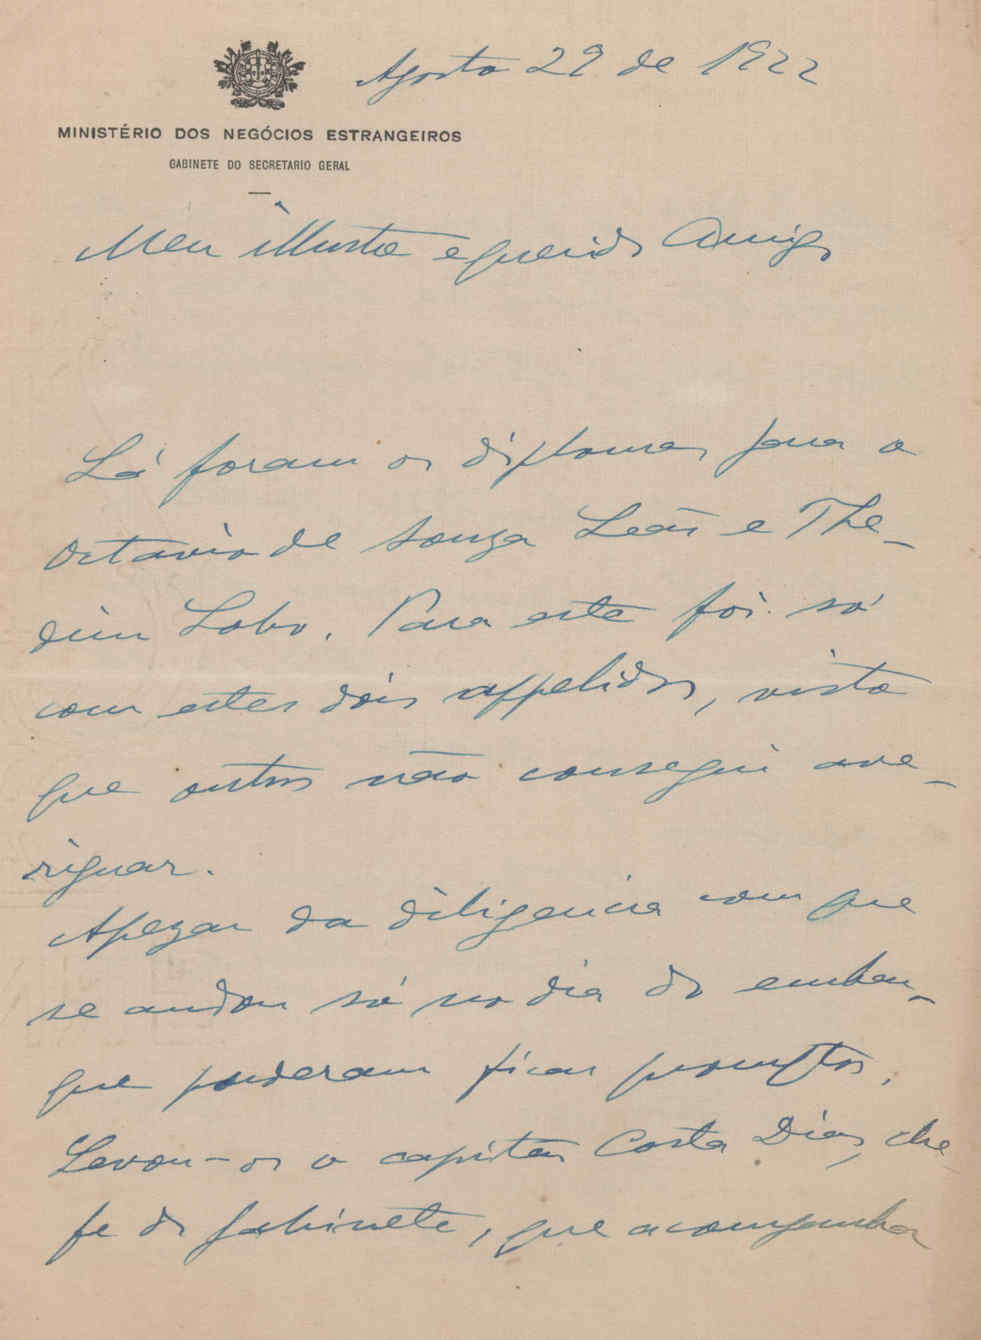 Agosto 29 de 1922
MINISTÉRIO DOS NEGÓCIOS ESTRANGEIROS
GABINETE DO SECRETARIO GERAL
Meu illustre e querido Amigo
Lá foram os diplomas para o
Octavio de Souza Leão e The-
dim Lobo. Para este foi só
com estes dois appelidos, visto
que outros não consegui ave-
riguar.
Apezar da diligencia com que
se andou só no dia do embar-
que poderam ficar promptos.
Levou-os o capitão Costa Dias, che-
fe do gabinete, que acompanha